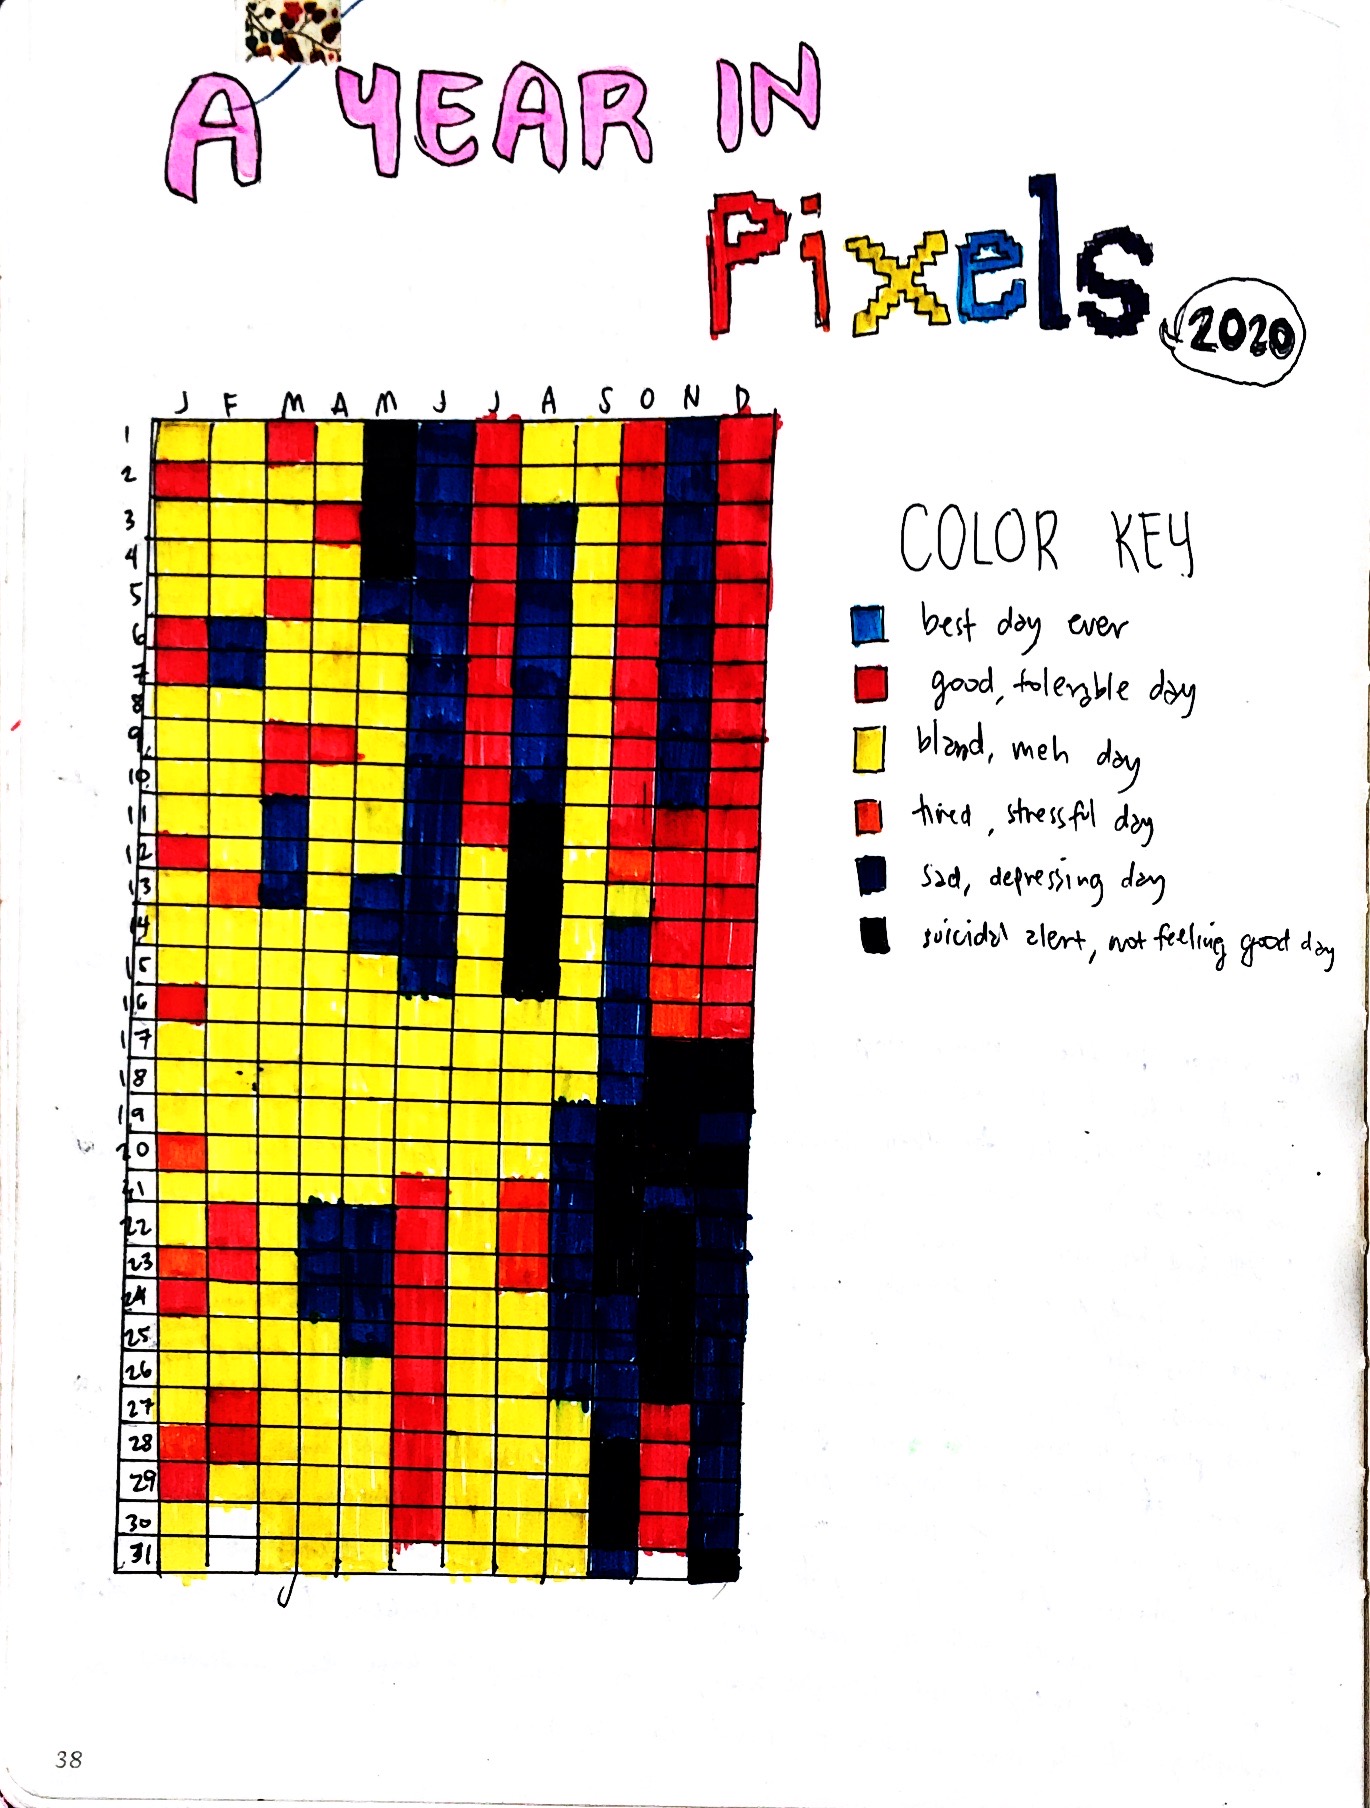 A YEAR IN
Pixels
2020
J F M A M J J A S O N D
1
2
3
4
5
6
7
8
9
10
11
12
13
14
15
16
17
18
19
20
21
22
23
24
25
26
27
28
29
30
31
COLOR KEY
best day ever
good, tolerable day
bland, meh day
tired, stressful day
sad, depressing day
suicidal alert, not feeling good day
38